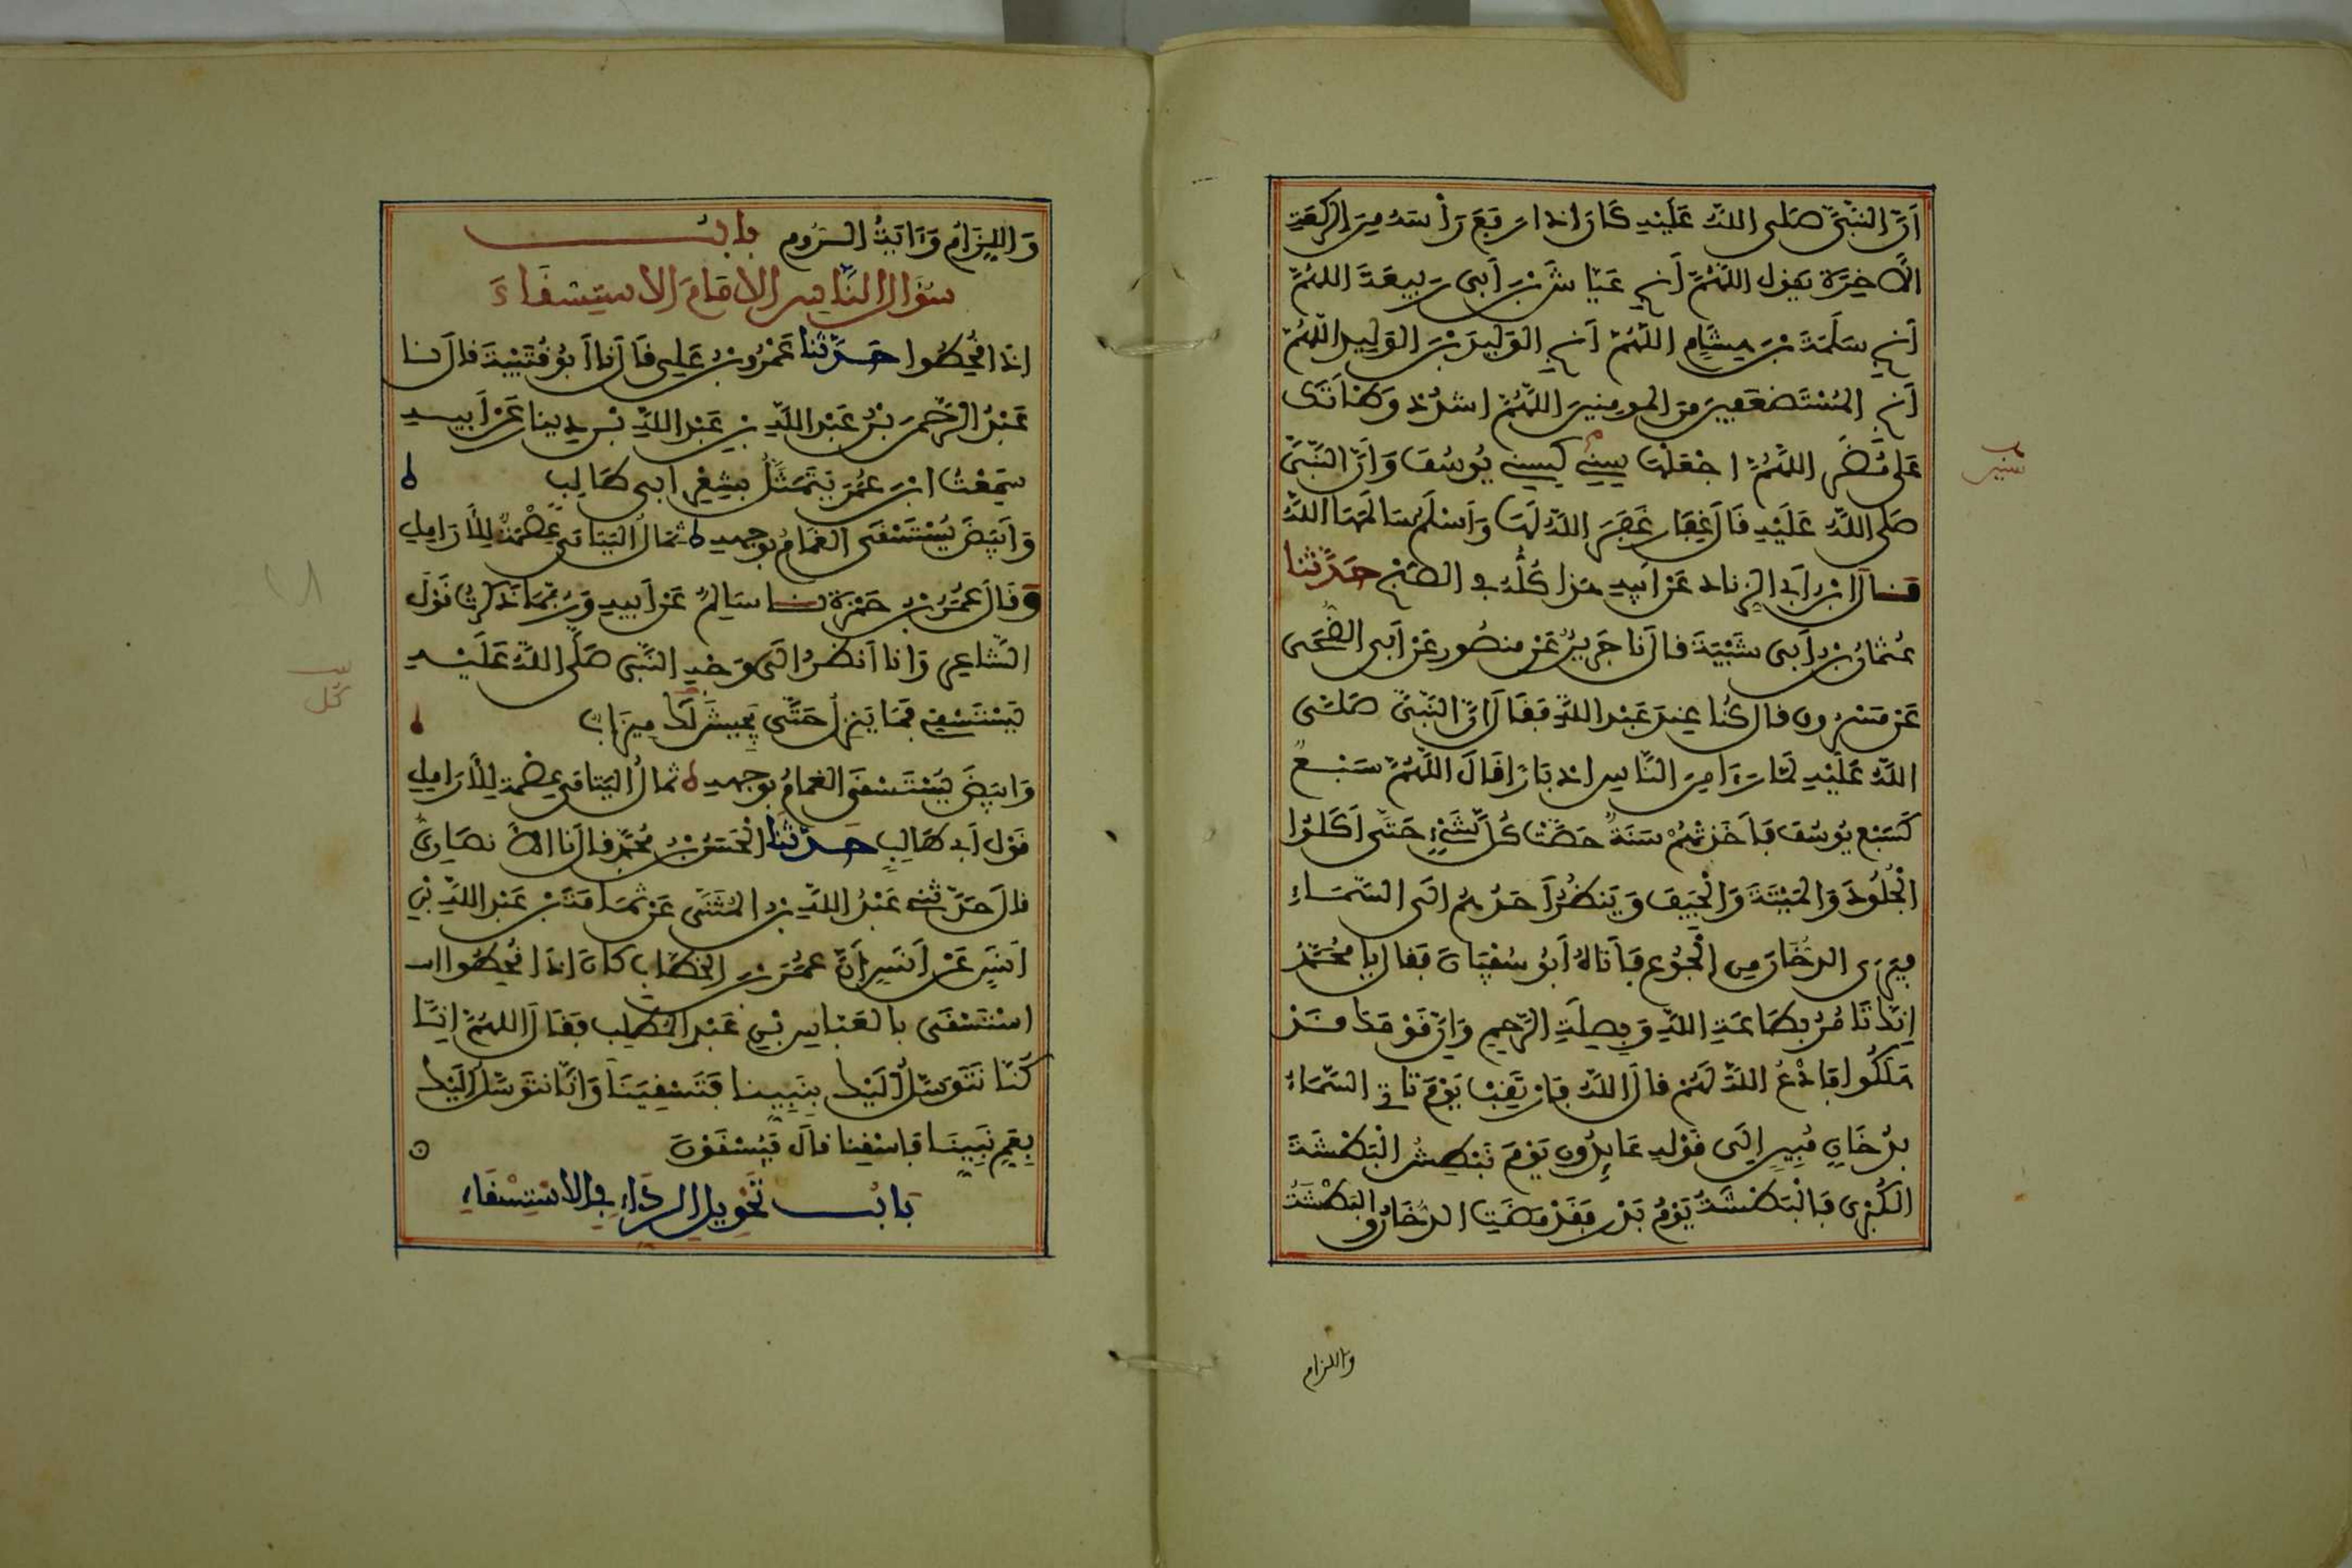 أَنَّ النَّبِيَّ صَلى اللهُ عَلَيْهِ كَانَ إِذَا رَفَعَ رَأْسَهُ مِنَ الرَّكْعَةِ
الآخِرَةِ يَقُولُ اللَّهُمَّ أَنجِ عَيَّاشَ بْنَ أَبِي رَبِيعَةَ اللَّهُمَّ
أَنجِ سَلَمَةَ بْنَ هِشَامٍ اللَّهُمَّ أَنجِ الوَلِيدَ بْنَ الوَلِيدِ اللَّهُمَّ
أَنجِ المُسْتَضْعَفِينَ مِنَ المُومِنِينَ اللَّهُمَّ اشْدُدْ وَطْأَتَكَ
عَلَى مُضَرَ اللَّهُمَّ اجْعَلْهَا سِنِينَ كَسِنِي يُوسُفَ وَأَنَّ النَّبِيَّ
صَلى اللهُ عَلَيْهِ قَالَ غِفَارُ غَفَرَ اللهُ لَهَا وَأَسْلَمُ سَالَمَهَا اللهُ
قَالَ ابْنُ أَبِي الزِّنَادِ عَنْ أَبِيهِ هَذَا كُلُّهُ فِي الصُّبْحِ حَدَّثَنَا
عُثْمَانُ بْنُ أَبِي شَيْبَةَ قَالَ نَا جَرِيرٌ عَنْ مَنْصُورٍ عَنْ أَبِي الضُّحَى
عَنْ مَسْرُوقٍ قَالَ كُنَّا عِنْدَ عَبْدِ اللهِ فَقَالَ إِنَّ النَّبِيَّ صَلَّى
اللهُ عَلَيْهِ لَمَّا رَءَا مِنَ النَّاسِ إِدْبَارًا قَالَ اللَّهُمَّ سَبْعٌ
كَسَبْعِ يُوسُفَ فَأَخَذَتْهُمْ سَنَةٌ حَصَّتْ كُلَّ شَيْءٍ حَتَّى أَكَلُوا
الْجُلُودَ وَالمَيْتَةَ وَالْجِيَفَ وَيَنْظُرُ أَحَدُهُمْ إِلَى السَّمَاءِ
فَيَرَى الدُّخَانَ مِنَ الْجُوعِ فَأَتَاهُ أَبُو سُفْيَانَ فَقَالَ يَا مُحَمَّدُ
إِنَّكَ تَامُرُ بِطَاعَةِ اللهِ وَبِصِلَةِ الرَّحِمِ وَإِنَّ قَوْمَكَ قَدْ
هَلَكُوا فَادْعُ اللهَ لَهُمْ قَالَ اللهُ فَارْتَقِبْ يَوْمَ تَاتِي السَّمَاءُ
بِدُخَانٍ مُبِينٍ إِلَى قَوْلِهِ عَائِدُونَ يَوْمَ نَبْطِشُ الْبَطْشَةَ
الْكُبْرَى فَالْبَطْشَةُ يَوْمُ بَدْرٍ فَقَدْ مَضَتِ الدُّخَانُ وَالبَطْشَةُ
وَاللزام
وَاللِّزَامُ وَءَايَةُ الرُّومِ بَابُ
سُؤَالِ النَّاسِ الإِمَامَ الاسْتِسْقَاءَ
إِذَا قُحِطُوا حَدَّثَنَا عَمْرُو بْنُ عَلِيٍّ قَالَ نَا أَبُو قُتَيْبَةَ قَالَ نَا
عَبْدُ الرَّحْمَنِ بْنُ عَبْدِ اللهِ بْنِ عَبْدِ اللهِ بْنِ دِينَارٍ عَنْ أَبِيهِ
سَمِعْتُ ابْنَ عُمَرَ يَتَمَثَّلُ بِشِعْرِ أَبِي طَالِبٍ
وَأَبْيَضَ يُسْتَسْقَى الغَمَامُ بِوَجْهِهِ ثِمَالُ اليَتَامَى عِصْمَةٌ لِلأَرَامِلِ
وَقَالَ عُمَرُ بْنُ حَمْزَةَ نَا سَالِمٌ عَنْ أَبِيهِ وَرُبَّمَا ذَكَرْتُ قَوْلَ
الشَّاعِرِ وَأَنَا أَنْظُرُ إِلَى وَجْهِ النَّبِيِّ صَلَّى اللهُ عَلَيْهِ
يَسْتَسْقِي فَمَا يَنْزِلُ حَتَّى يَجِيشَ لَكَ مِيزَابُ
وَأَبْيَضَ يُسْتَسْقَى الغَمَامُ بِوَجْهِهِ ثِمَالُ اليَتَامَى عِصْمَةٌ لِلأَرَامِلِ
قَوْلُ أَبِي طَالِبٍ حَدَّثَنَا الْحَسَنُ بْنُ مُحَمَّدٍ قَالَ نَا الأَنْصَارِيُّ
قَالَ حَدَّثَنِي عَبْدُ اللهِ بْنُ المُثَنَّى عَنْ ثُمَامَةَ بْنِ عَبْدِ اللهِ بْنِ
أَنَسٍ عَنْ أَنَسٍ أَنَّ عُمَرَ بْنَ الْخَطَّابِ كَانَ إِذَا قُحِطُوا
اسْتَسْقَى بِالعَبَّاسِ بْنِ عَبْدِ المُطَّلِبِ فَقَالَ اللَّهُمَّ إِنَّا
كُنَّا نَتَوَسَّلُ إِلَيْكَ بِنَبِيِّنَا فَتَسْقِيَنَا وَإِنَّا نَتَوَسَّلُ إِلَيْكَ
بِعَمِّ نَبِيِّنَا فَاسْقِنَا قَالَ فَيُسْقَوْنَ
بَابُ تَحْوِيلِ الرِّدَاءِ فِي الاسْتِسْقَاءِ